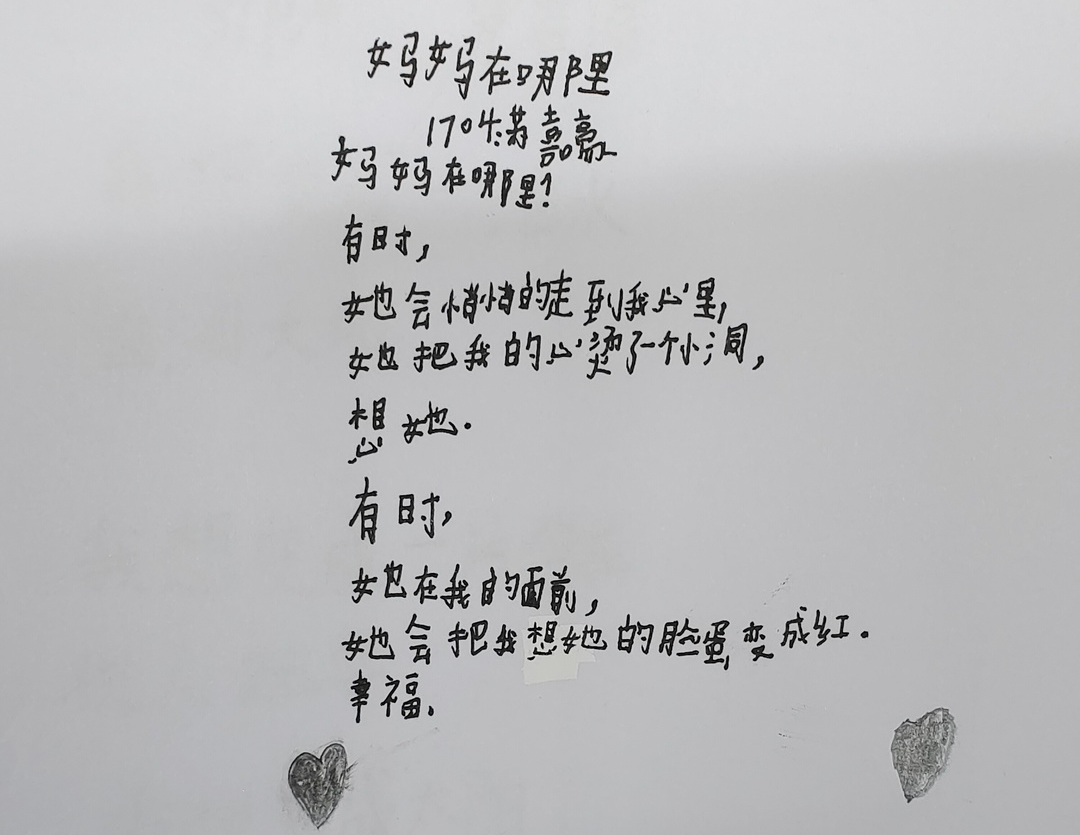 妈妈在哪里
1704 喜豪
妈妈在哪里?
有时,
她会悄悄的走到我心里,
她把我的心烫了一个小洞,
想她.
有时,
她在我的面前,
她会把我想她的脸蛋变成红.
幸福.